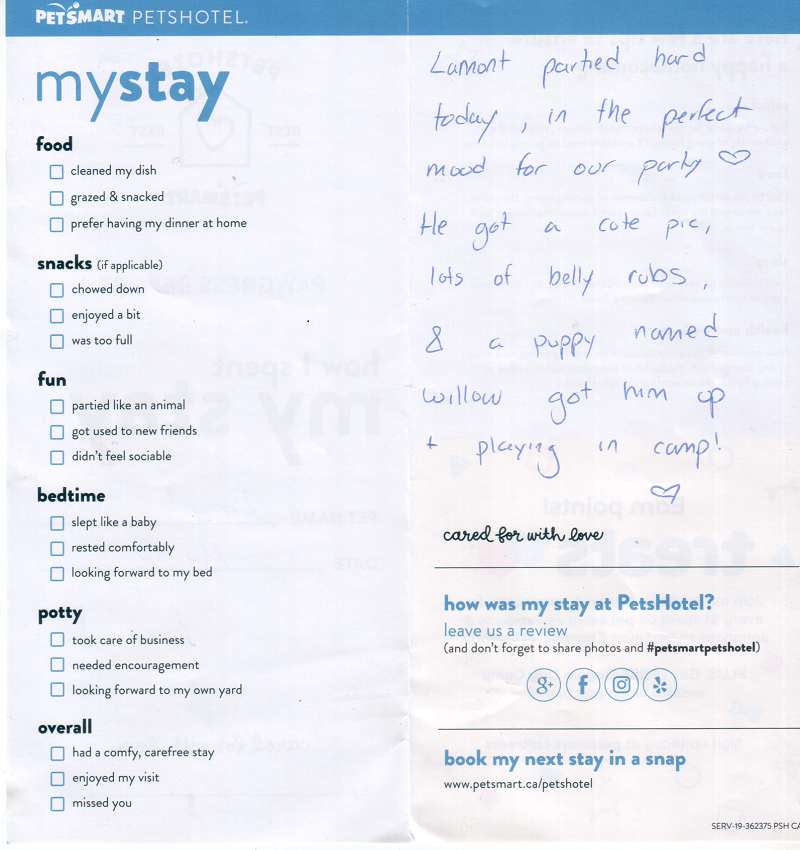 PETSMART PETSHOTEL.
mystay
food
cleaned my dish
grazed & snacked
prefer having my dinner at home
snacks (if applicable)
chowed down
enjoyed a bit
was too full
fun
partied like an animal
got used to new friends
didn't feel sociable
bedtime
slept like a baby
rested comfortably
looking forward to my bed
potty
took care of business
needed encouragement
looking forward to my own yard
overall
had a comfy, carefree stay
enjoyed my visit
missed you
Lamont partied hard
today, in the perfect
mood for our party ♡
He got a cute pic,
lots of belly rubs,
& a puppy named
willow got him up
+ playing in camp!
♡
cared for with love
how was my stay at PetsHotel?
leave us a review
(and don't forget to share photos and #petsmartpetshotel)
g+ f
book my next stay in a snap
www.petsmart.ca/petshotel
SERV-19-362375 PSH CA